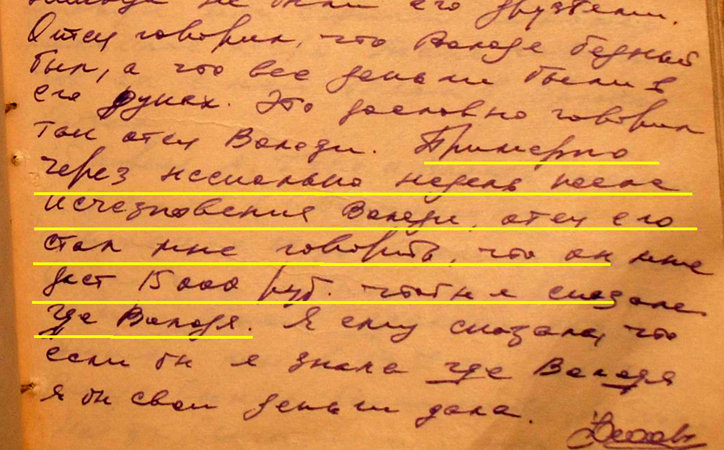 никогда не были его друзьями.
Отец говорил, что Володя бедный
был, а что все деньги были в
его руках. Это дословно говорил
так отец Володи. Примерно
через несколько недель после
исчезновения Володи, отец его
стал мне говорить, что он мне
даст 15000 руб. чтобы я сказала
где Володя. Я ему сказала, что
если бы я знала где Володя
я бы свои деньги дала.